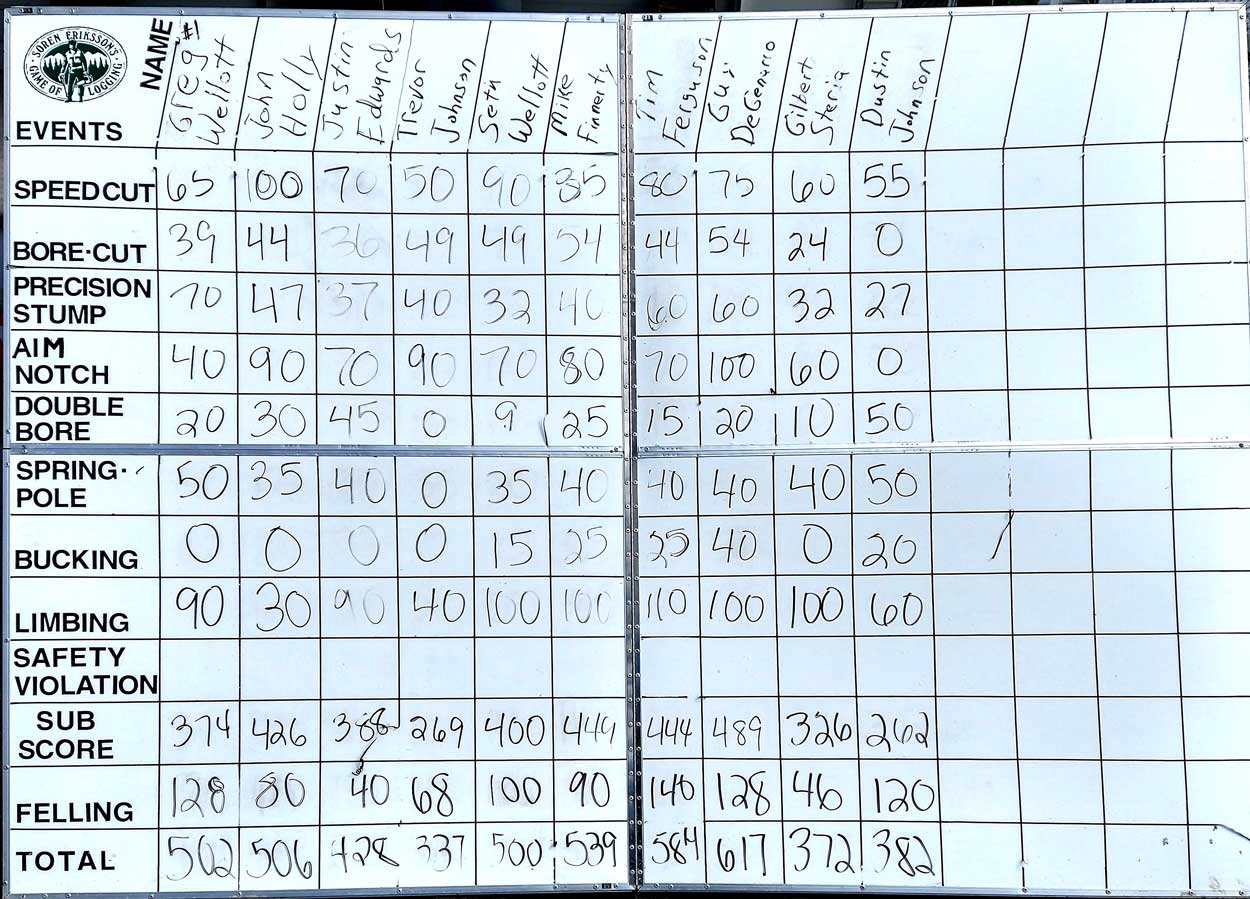 SOREN ERIKSSON'S
GAME OF LOGGING
NAME
#1
Greg Wellott
John Holly
Justin Edwards
Trevor Johnson
Seth Wellott
Mike Finnerty
Tim Ferguson
Guy DeGenaro
Gilbert Steria
Dustin Johnson
EVENTS
SPEED CUT 65 100 70 50 90 85 80 75 60 55
BORE·CUT 39 44 36 49 49 54 44 54 24 0
PRECISION
STUMP 70 47 37 40 32 40 60 60 32 27
AIM
NOTCH 40 90 70 90 70 80 70 100 60 0
DOUBLE
BORE 20 30 45 0 9 25 15 20 10 50
SPRING·
POLE 50 35 40 0 35 40 40 40 40 50
BUCKING 0 0 0 0 15 25 25 40 0 20
LIMBING 90 30 90 40 100 100 110 100 100 60
SAFETY
VIOLATION
SUB
SCORE 374 426 388 269 400 449 444 489 326 262
FELLING 128 80 40 68 100 90 140 128 46 120
TOTAL 502 506 428 337 500 539 584 617 372 382